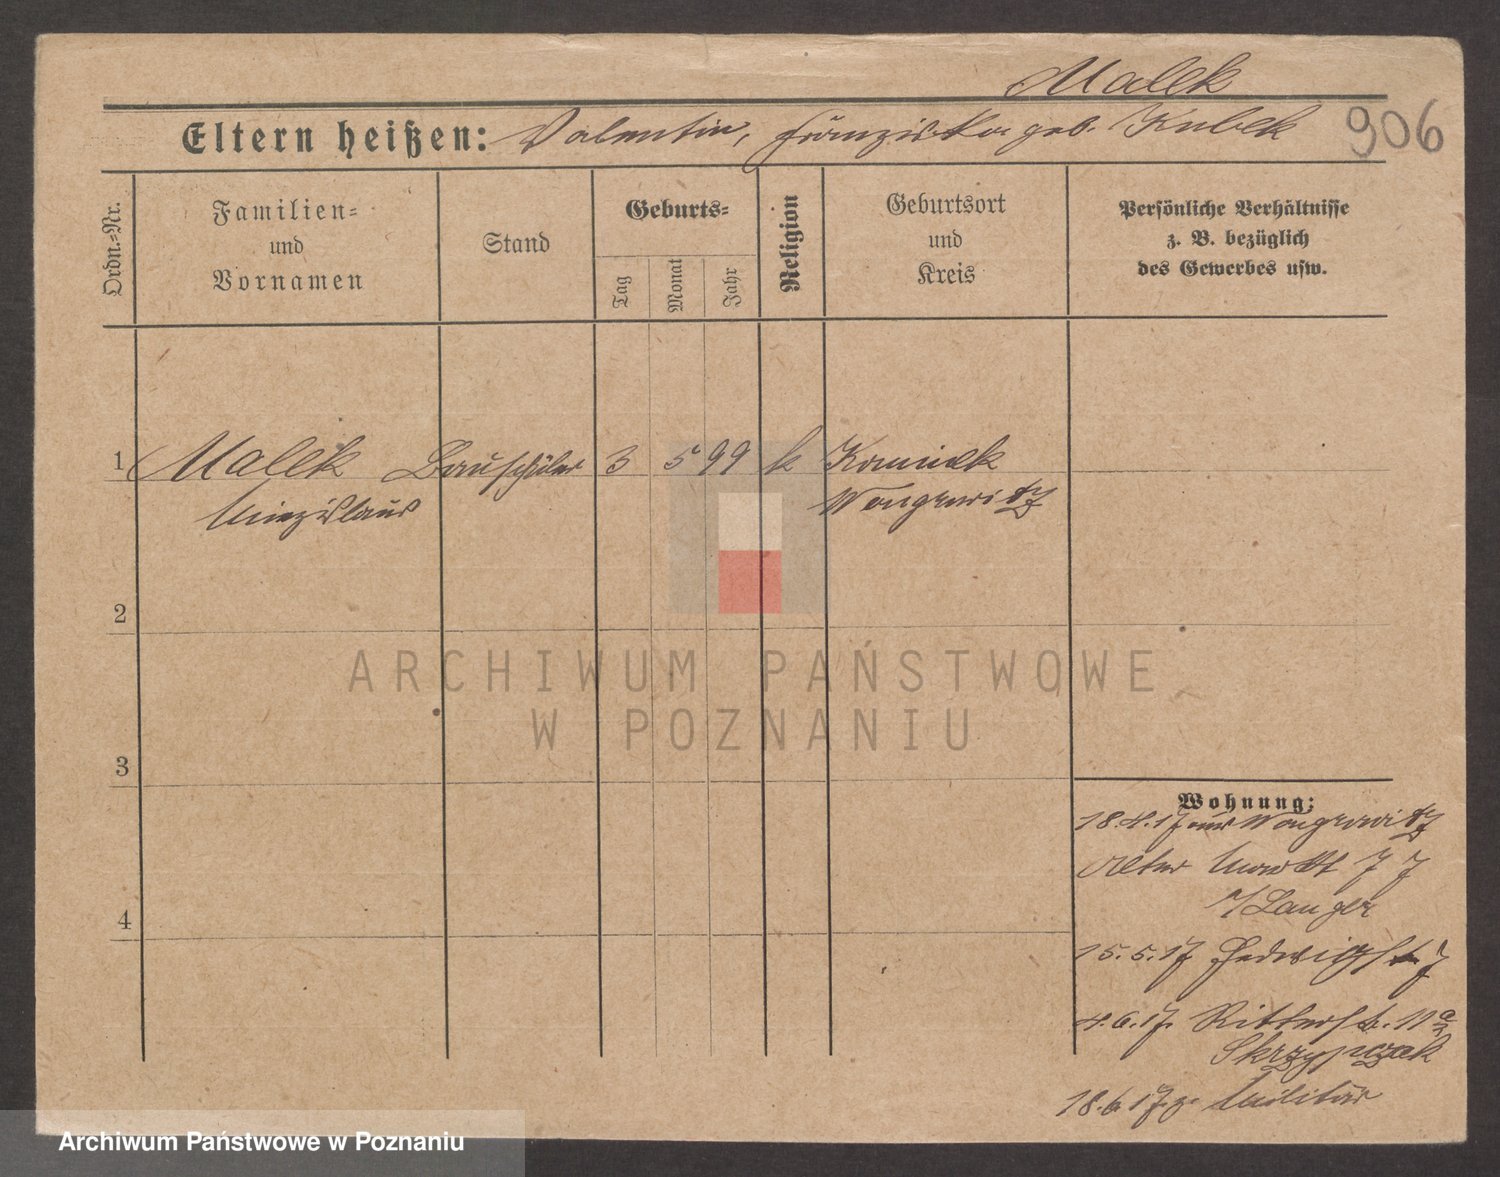 Malek
Eltern heißen: Valentin, Franziska geb. Kubek
906
Ordn.=Nr.
Familien=
und
Vornamen
Stand
Geburts=
Tag
Monat
Jahr
Religion
Geburtsort
und
Kreis
Persönliche Verhältnisse
z. B. bezüglich
des Gewerbes usw.
1 Malek Bauschüler 3 5 99 k
Miezislaus Wongrowitz
2
3
4
ARCHIWUM PAŃSTWOWE
W POZNANIU
Wohnung:
18.4.17 aus Wongrowitz
Alter Markt 77
b/Langer
15.5.17 Hedwigstr 7
4.6.17. Ritterstr. 11
Skrzypczak
18.6.17 z. Militär
Archiwum Państwowe w Poznaniu